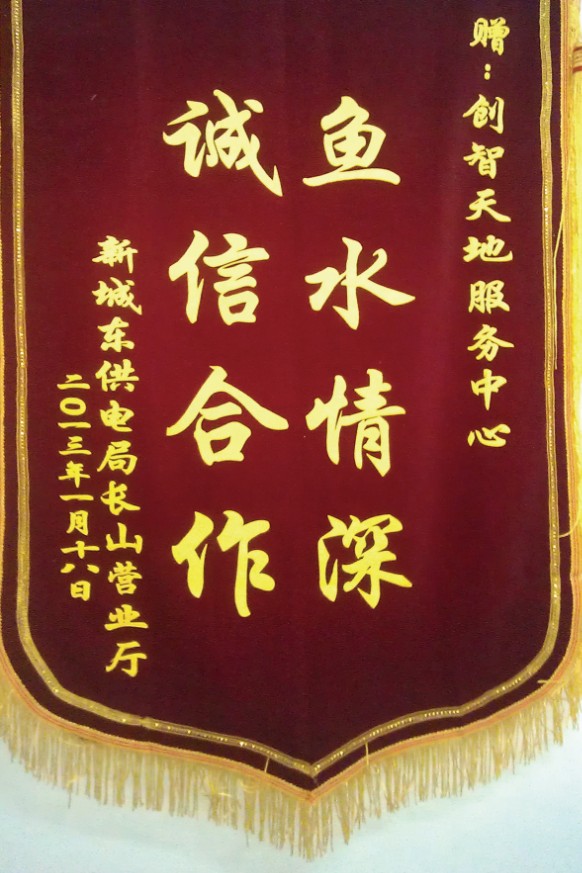 赠:创智天地服务中心
鱼水情深
诚信合作
新城东供电局长山营业厅
二〇一三年一月十八日